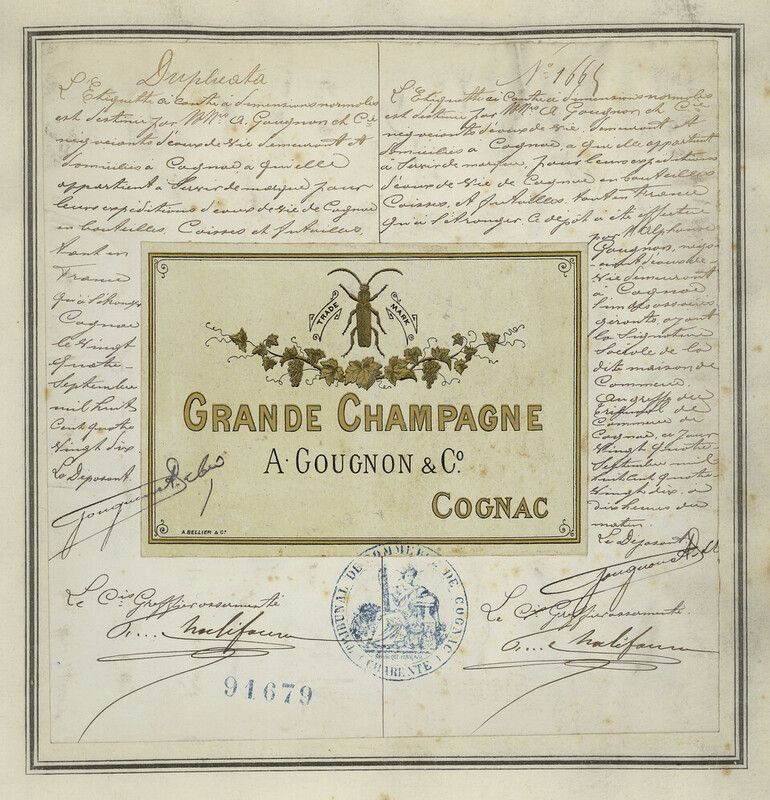 Duplicata
L'Etiquette ci contre à dimensions normales
est destinée par MMrs A. Gougnon et Cie
négociants d'eaux de vie demeurant et
domiciliés à Cognac à qui elle
appartient à Servir de marque pour
leurs expéditions d'eaux de vie de Cognac
en bouteilles, Caisses et futailles,
tant en
France
qu'à l'étranger
Cognac
le vingt
quatre
Septembre
mil huit
cent quatre
vingt dix
Le Déposant
Le Cis Greffier assermenté
No 1665
L'Etiquette ci Contre à dimensions normales
est destinée par MMrs A. Gougnon et Cie
négociants d'eaux de vie, demeurant et
domiciliés à Cognac, à qui elle appartient
à Servir de marque, pour leurs expéditions
d'eaux de vie de Cognac en bouteilles
Caisses, et futailles, tant en France
qu'à l'étranger. Ce dépôt a été effectué
par M. Alphonse
Gougnon, négo-
ciant d'eaux de
vie demeurant
à Cognac
l'un des associés
gérants ayant
la Signature
Sociale de la
dite maison de
Commerce.
Au greffe du
Tribunal de
Commerce de
Cognac, ce jour
vingt quatre
Septembre mil
huit cent quatre-
vingt dix, à
dix heures du
matin.
Le Déposant
Le Cis Greffier assermenté.
TRADE MARK
GRANDE CHAMPAGNE
A. GOUGNON & Co.
COGNAC
A. BELLIER & Co
TRIBUNAL DE COMMERCE DE COGNAC
(CHARENTE)
91679